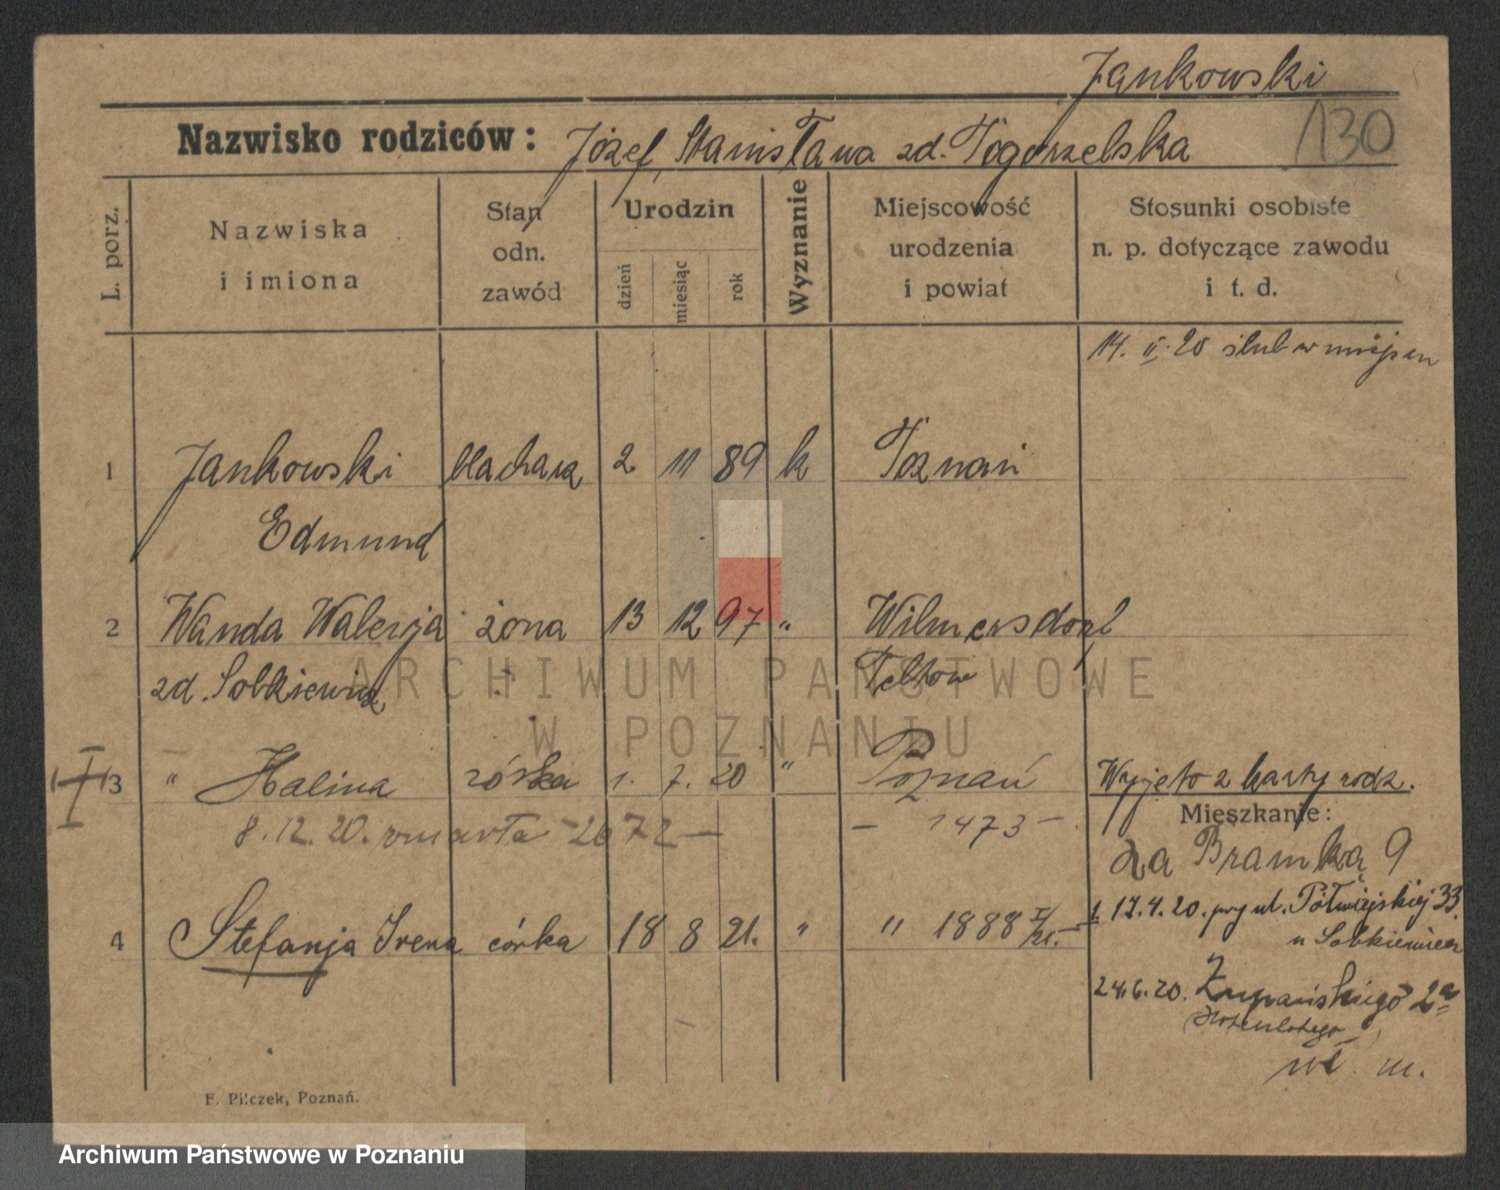 Jankowski
130
Nazwisko rodziców: Józef, Stanisława zd. Pogorzelska
L. porz.
Nazwiska i imiona
Stan odn. zawód
Urodzin
dzień
miesiąc
rok
Wyznanie
Miejscowość urodzenia i powiat
Stosunki osobiste n. p. dotyczące zawodu i t. d.
14. II. 20 ślub w miejscu
1 Jankowski blacharz 2 11 89 k Poznań
Edmund
2 Wanda Walerja żona 13 12 97 " Wilmersdorf
zd. Sobkiewicz Teltow
ARCHIWUM PAŃSTWOWE
W POZNANIU
3 " Halina córka 1. 7. 20 " Poznań Wyjęto z karty rodz.
8. 12. 20. zmarła - 2672 - - 1473 -
Mieszkanie:
Za Bramką 9
4 Stefanja Irena córka 18 8 21. " " 1888 I/21.
1. 17. 4. 20. przy ul. Półwiejskiej 33.
u Sobkiewicz
24. 6. 20. Żupańskiego 2a
F. Pilczek, Poznań.
Archiwum Państwowe w Poznaniu